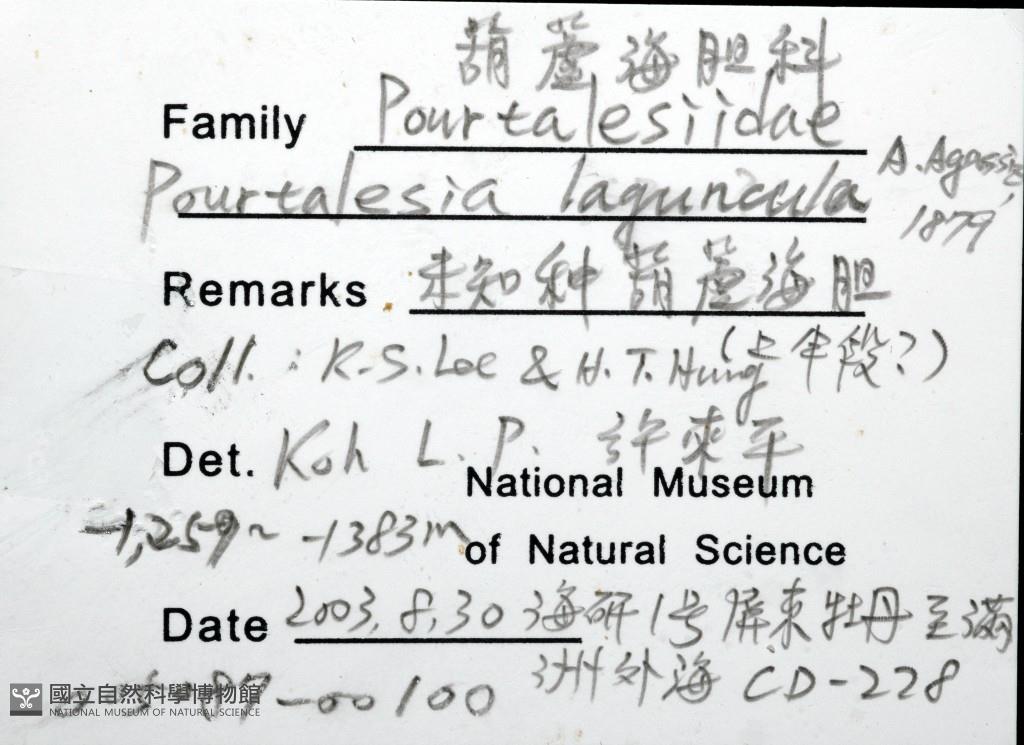 葫蘆海胆科
Family Pourtalesiidae
Pourtalesia laguncula A. Agassiz, 1879
Remarks 未知种葫蘆海胆
Coll.: K.S. Lee & H.T. Hung (上半段?)
Det. Koh L. P. 許來平
National Museum
-1,259~ -1383m
of Natural Science
Date 2003.8.30 海研1号屏東牡丹至滿
洲外海 CD-228
-00100
國立自然科學博物館
NATIONAL MUSEUM OF NATURAL SCIENCE